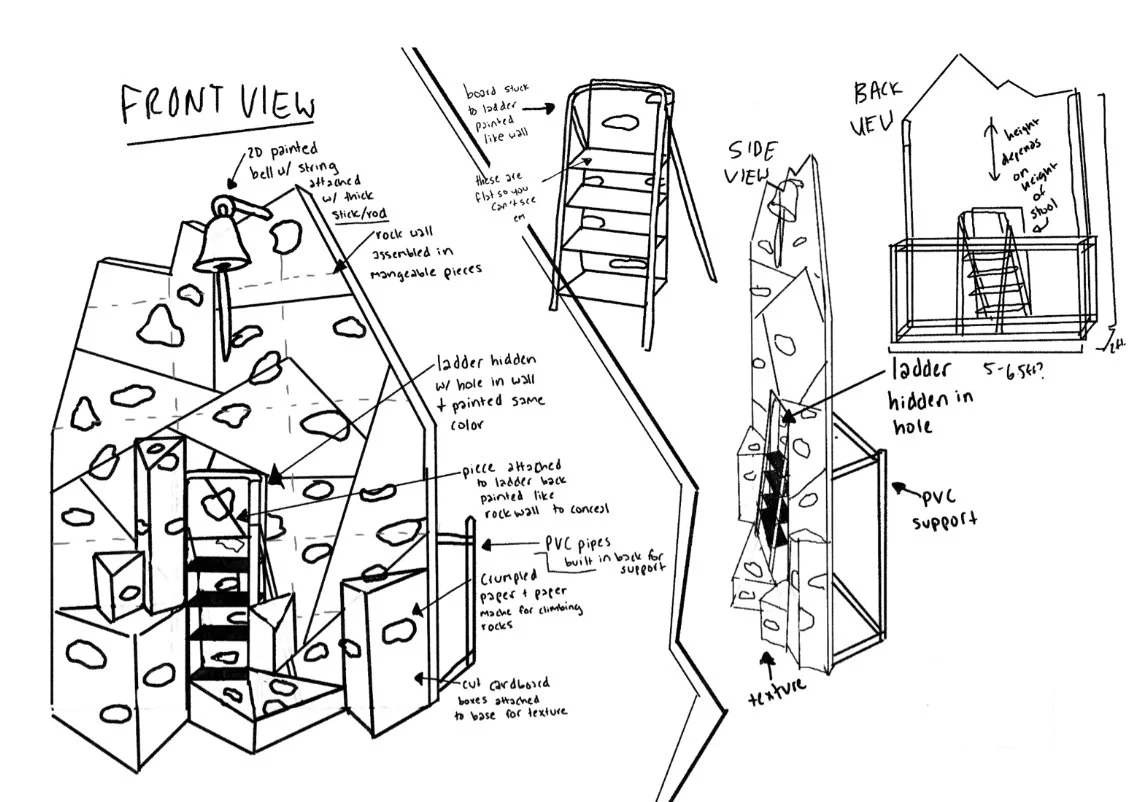 FRONT VIEW
2D painted
bell w/ string
attached
w/ thick
stick/rod
rock wall
assembled in
mangeable pieces
ladder hidden
w/ hole in wall
+ painted same
color
piece attached
to ladder back
painted like
rock wall to conceal
PVC pipes
built in back for
support
Crumpled
paper + paper
mache for climbing
rocks
cut cardboard
boxes attached
to base for texture
board stuck
to ladder
painted
like wall
these are
flat so you
can't see
em
SIDE
VIEW
ladder
hidden in
hole
PVC
support
texture
BACK
VEU
height
depends
on height
of
stool
5-6.5ft?
2ft.